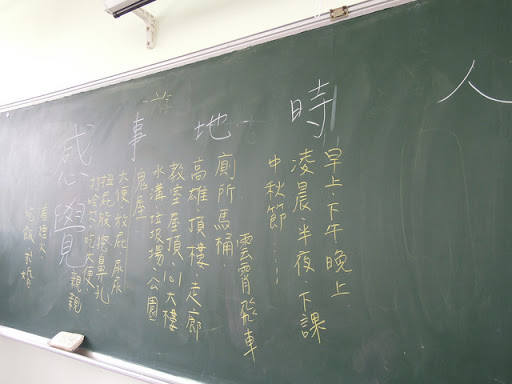 人
時
早上、下午、晚上
凌晨、半夜、下課
中秋節……
地
雲霄飛車
廁所馬桶、
高雄、頂樓、走廊
教室屋頂、101大樓
水溝、垃圾場、公園
鬼屋、
事
大便、放屁、尿尿
挖屁股、挖鼻孔
打哈欠、吃大便、親親
吃飯、結婚
感覺